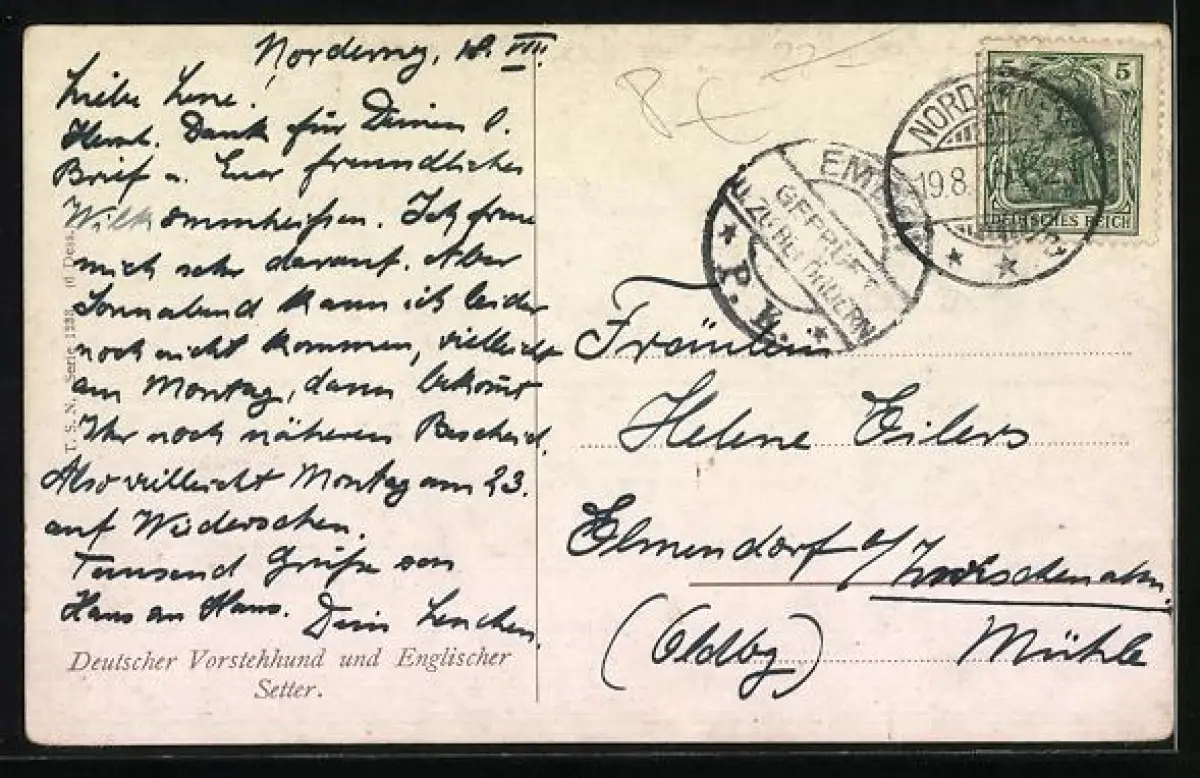 Norderney, 18. VIII.
Liebe Lene!
Herzl. Dank für Deinen l.
Brief u. Euer freundliches
Willkommenheißen. Ich freue
mich sehr darauf. Aber
Sonnabend kann ich leider
noch nicht kommen, vielleicht
am Montag, dann bekommt
Ihr noch näheren Bescheid.
Also vielleicht Montag am 23.
auf Wiedersehen.
Tausend Grüße von
Haus zu Haus. Dein Lenchen.
Deutscher Vorstehhund und Englischer
Setter.
T. S. N. Serie 1233 (6 Dess.)
22-
5 5
DEUTSCHES REICH
NORDERNEY
19.8.
EMDEN
GEPRÜFT
U. ZU BEFÖRDERN
P. K.
Fräulein
Helene Eilers
Elmendorf a/Zwischenahn.
(Oldbg) Mühle